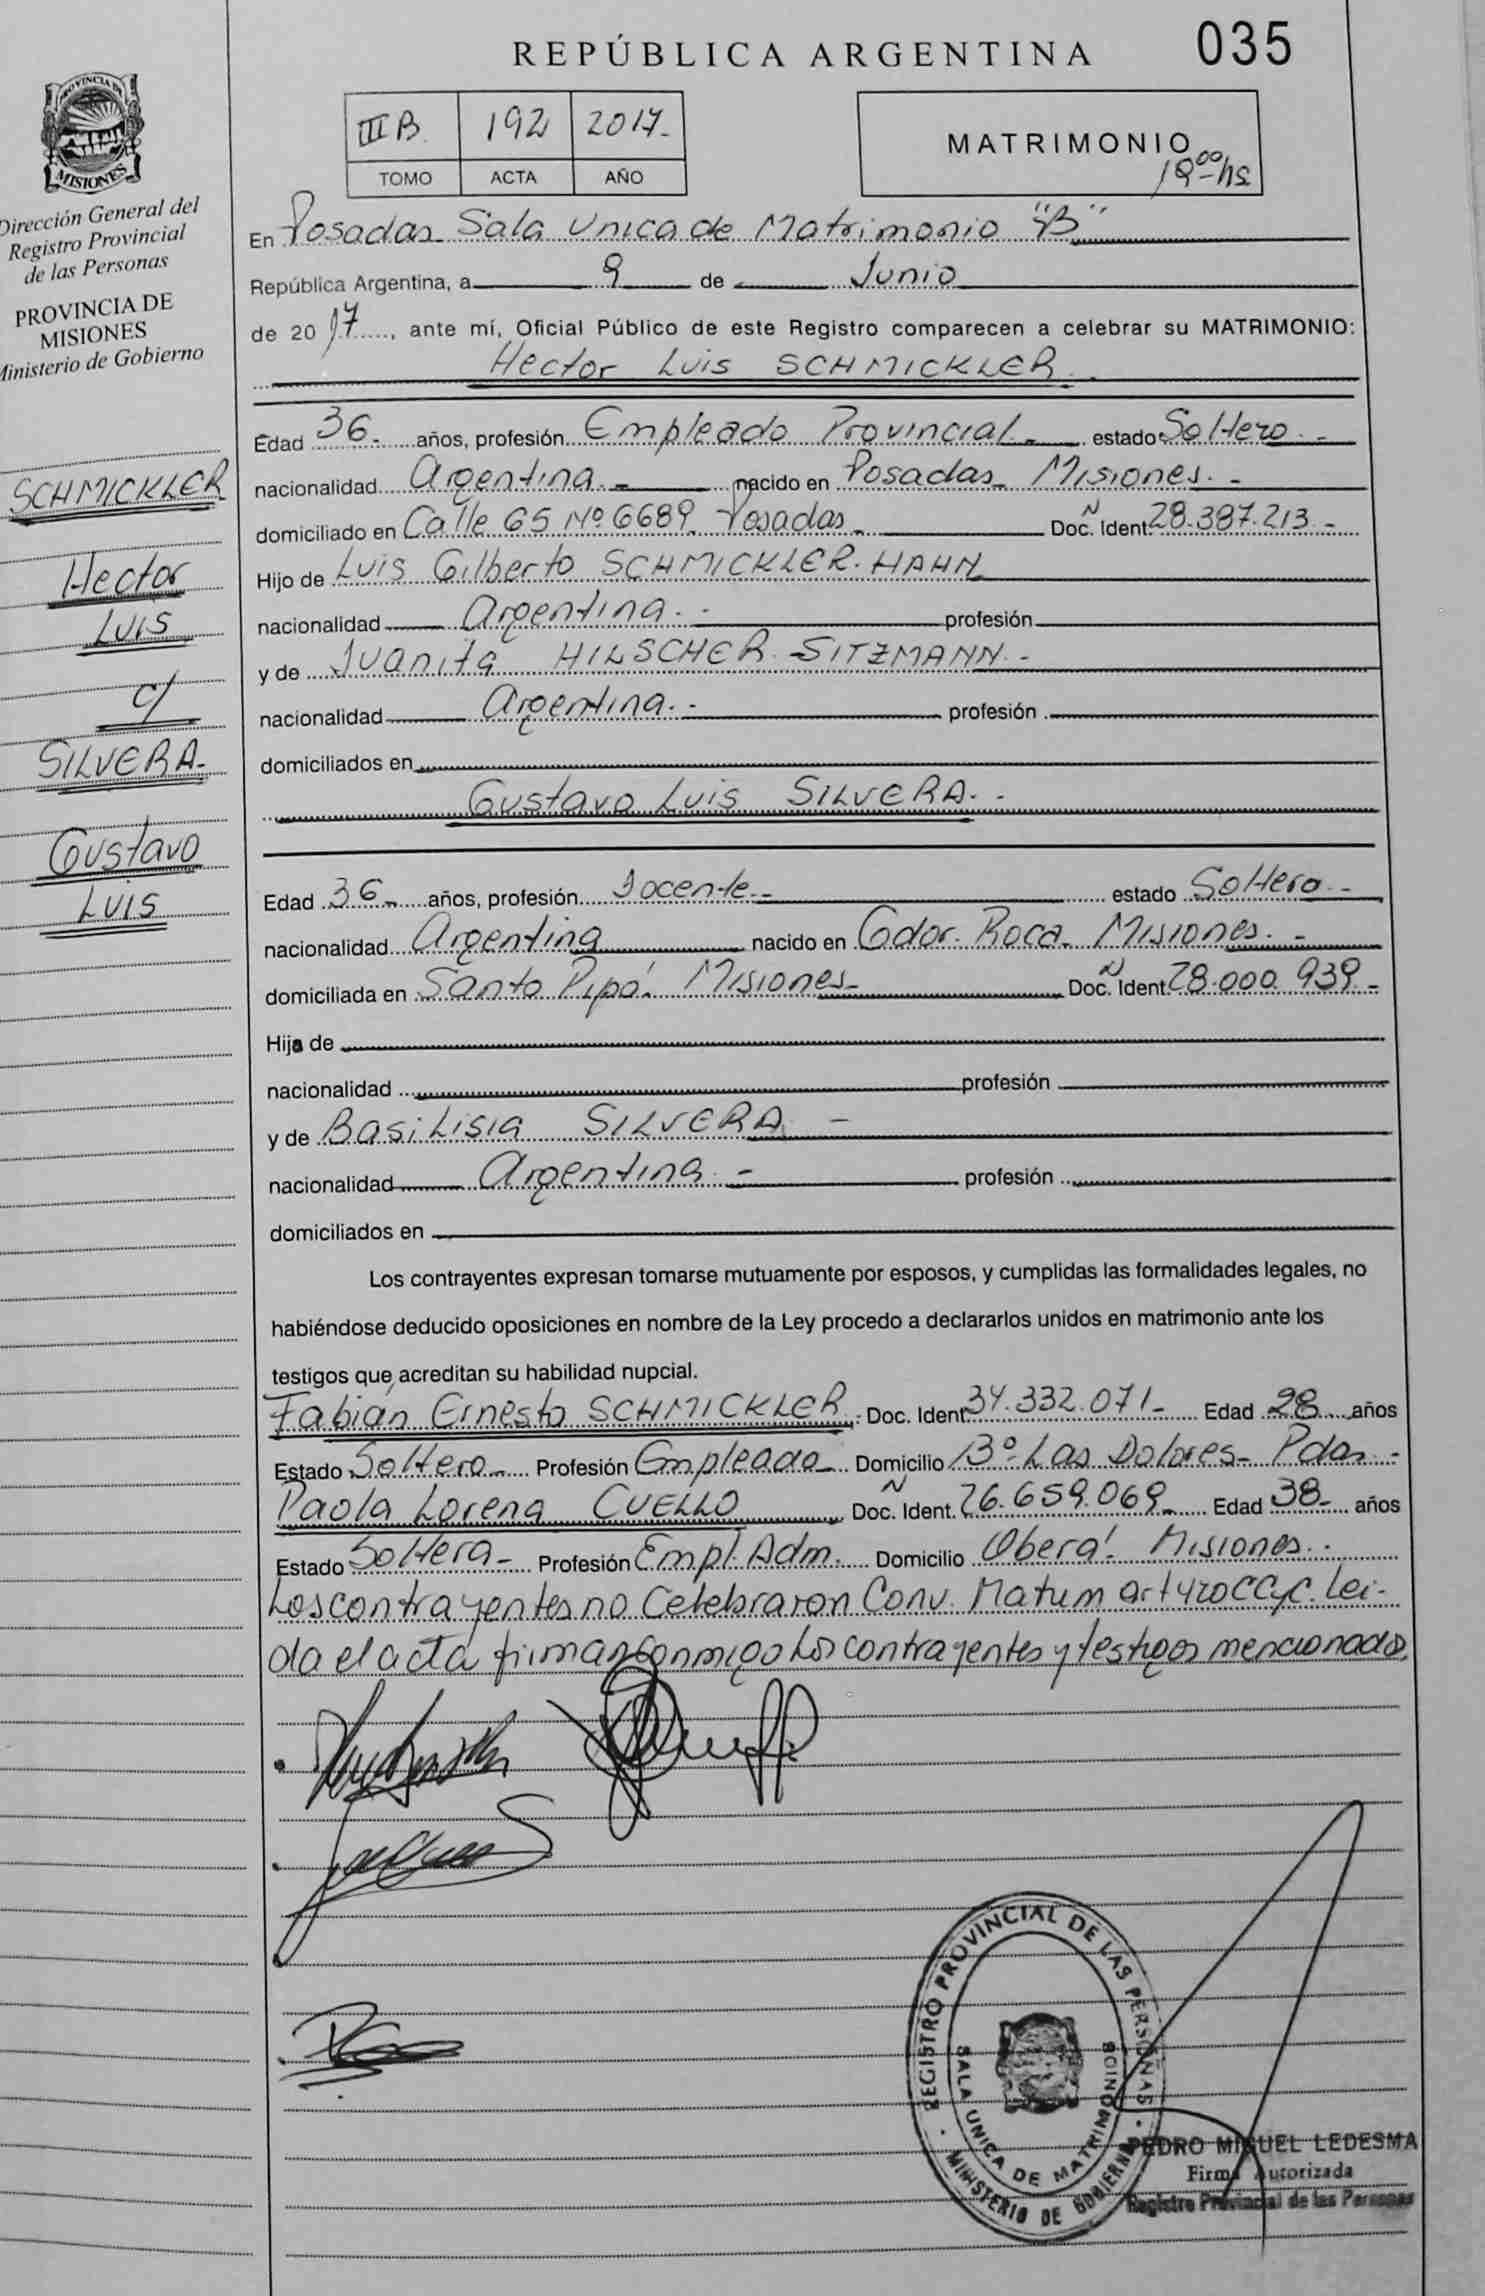 REPÚBLICA ARGENTINA 035
III B. 192 2017-
TOMO ACTA AÑO
MATRIMONIO
18-00hs
PROVINCIA DE
MISIONES
Dirección General del
Registro Provincial
de las Personas
PROVINCIA DE
MISIONES
Ministerio de Gobierno
SCHMICKLER
Hector
Luis
c/
SILVERA-
Gustavo
Luis
En Posadas Sala Unica de Matrimonio "B"
República Argentina, a 9 de Junio
de 2017, ante mí, Oficial Público de este Registro comparecen a celebrar su MATRIMONIO:
Hector Luis SCHMICKLER.
Edad 36- años, profesión Empleado Provincial- estado Soltero.-
nacionalidad Argentina.- nacido en Posadas Misiones.-
domiciliado en Calle 65 Nº 6689 Posadas- Doc. N Ident. 28.387.213.-
Hijo de Luis Gilberto SCHMICKLER. HAHN
nacionalidad Argentina.- profesión
y de Juanita HILSCHER. SITZMANN.-
nacionalidad Argentina.- profesión
domiciliados en
Gustavo Luis SILVERA.-
Edad 36- años, profesión Docente.- estado Soltero.-
nacionalidad Argentina nacido en Gdor. Roca- Misiones.-
domiciliada en Santo Pipó. Misiones- Doc. N Ident. 28.000.939.-
Hija de
nacionalidad profesión
y de Basilisia SILVERA -
nacionalidad Argentina.- profesión
domiciliados en
Los contrayentes expresan tomarse mutuamente por esposos, y cumplidas las formalidades legales, no
habiéndose deducido oposiciones en nombre de la Ley procedo a declararlos unidos en matrimonio ante los
testigos que acreditan su habilidad nupcial.
Fabián Ernesto SCHMICKLER. Doc. Ident. 34.332.071- Edad 28 años
Estado Soltero- Profesión Empleado- Domicilio Bº Las Dolores- Pdas.-
Paola Lorena CUELLO Doc. N Ident. 26.659.069- Edad 38- años
Estado Soltera- Profesión Empl. Adm. Domicilio Oberá. Misiones.
Los contrayentes no Celebraron Conv. Matrim art 420 CCyC. Lei-
da el acta firman conmigo Los contrayentes y testigos mencionados.
REGISTRO PROVINCIAL DE LAS PERSONAS
SALA UNICA DE MATRIMONIOS
MINISTERIO DE GOBIERNO
PEDRO MIGUEL LEDESMA
Firma Autorizada
Registro Provincial de las Personas